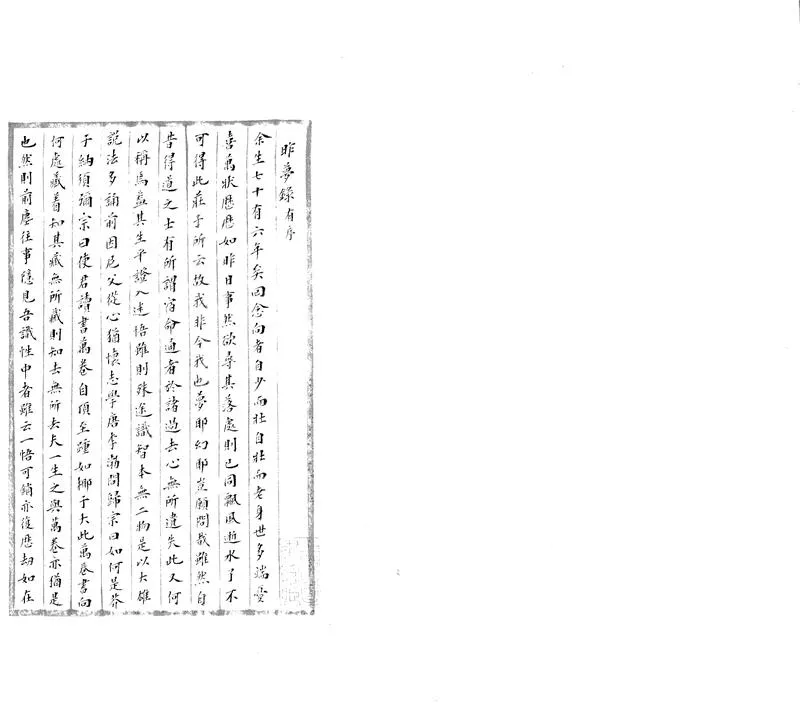 昨夢錄有序
余生七十有六年矣回念向者自少而壯自壯而老身世多端憂
喜萬狀歷歷如昨日事然欲尋其落處則已同飄風逝水了不
可得此莊子所云故我非今我也夢耶幻耶豈願問哉雖然自
昔得道之士有所謂宿命通者於諸過去心無所遺失此又何
以稱焉蓋其生平證入迷悟雖則殊途識智本無二物是以大雄
說法多誦前因尼父從心猶懷志學唐李渤問歸宗曰如何是芥
子納須彌宗曰使君讀書萬卷自頂至踵如揶子大此萬卷書向
何處藏着知其藏無所藏則知去無所去夫一生之與萬卷亦猶是
也然則前塵往事隱見吾識性中者雖云一悟可銷亦復歷劫如在